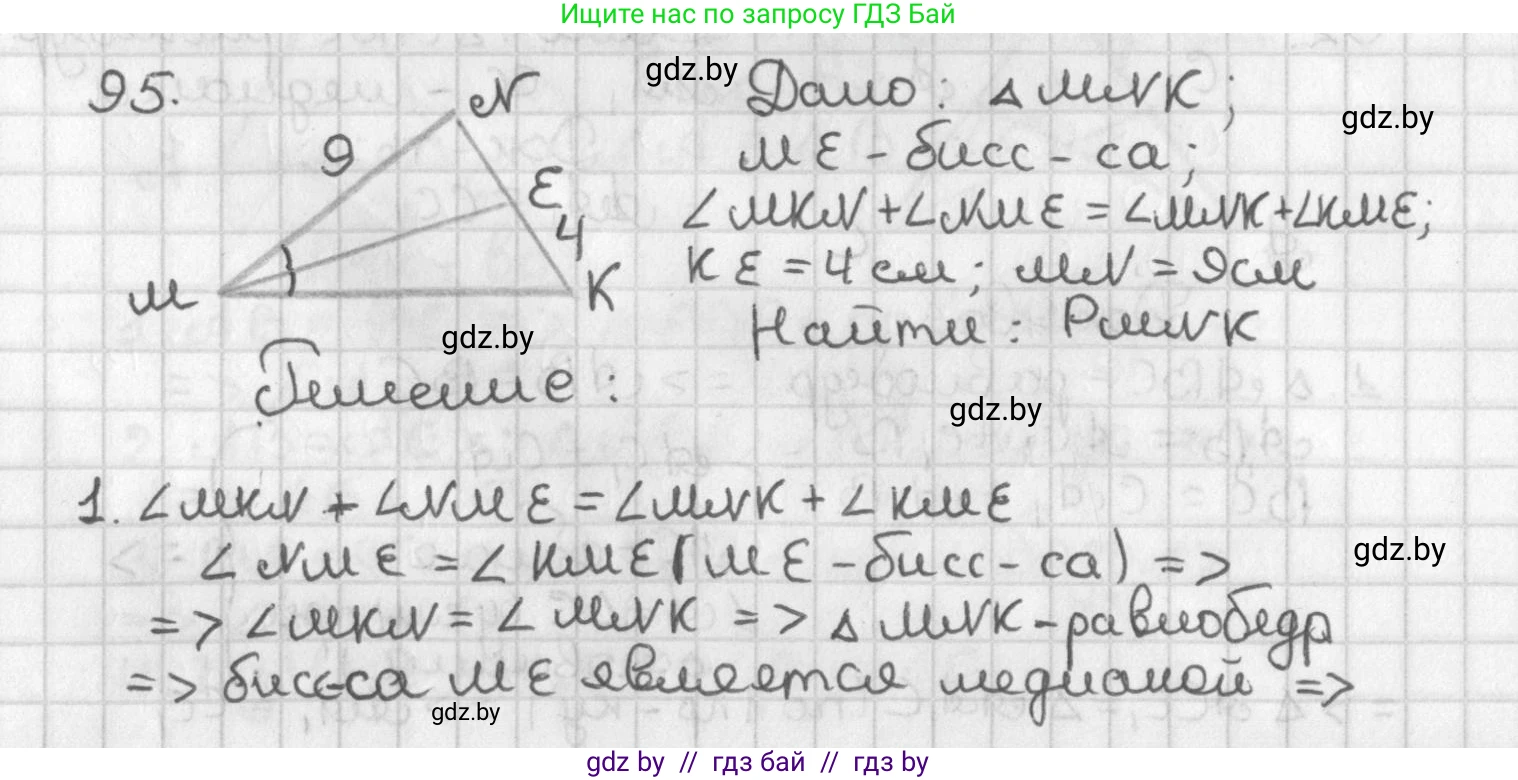 Ищите нас по запросу ГДЗ Бай
95.
N
9
E
4
M
K
gdz.by
Дано: △MNK;
gdz.by
ME - бисс-са;
∠MKN + ∠NME = ∠MNK + ∠KME;
KE = 4 см; MN = 9см
Найти: PMNK
gdz.by
Решение:
gdz.by
1. ∠MKN + ∠NME = ∠MNK + ∠KME
∠NME = ∠KME (ME - бисс-са) =>
gdz.by
=> ∠MKN = ∠MNK => △MNK - равнобедр
=> бисс-са ME является медианой =>
gdz.by
gdz by // гдз бай // гдз by